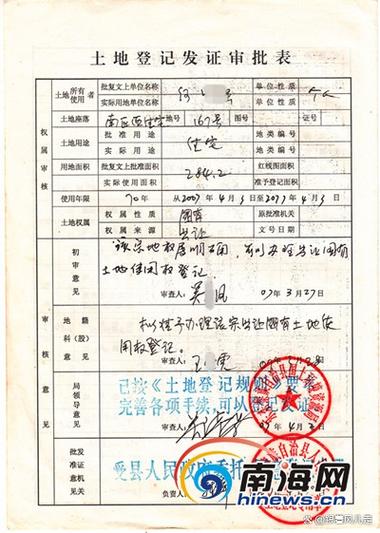 土地登记发证审批表
权属审核
土地所有者
使用
批复文上单位名称
单位性质
个人
实际用地单位名称
何 号
单位性质
土地座落
南区西住宅
地号
167号
图号
证号
土地用途
批准用途
地类编号
实际用途
住宅
地类编号
用地面积
批复文上批准面积
红线图面积
实际使用面积
284.2
准予登记面积
使用年限
70年
从2007年4月3日至2077年4月3日
土地权属
权属性质
国有
原批准机关
权属来源
出让
文号日期
审核意见
初审意见
该宗地权属明确,可办理出让国有
土地使用权登记。
审查人:
07年3月27日
地籍(股)科意见
拟准予办理该宗出让国有土地使
用权登记。
审查人:
局领导意见
已按《土地登记规则》要求
完善各项手续,可以登记发证
审查人:
07年4月2日
批准发证机关意见
受县人民政府委托
自治县人民
负责人:
南海网
www.hinews.cn